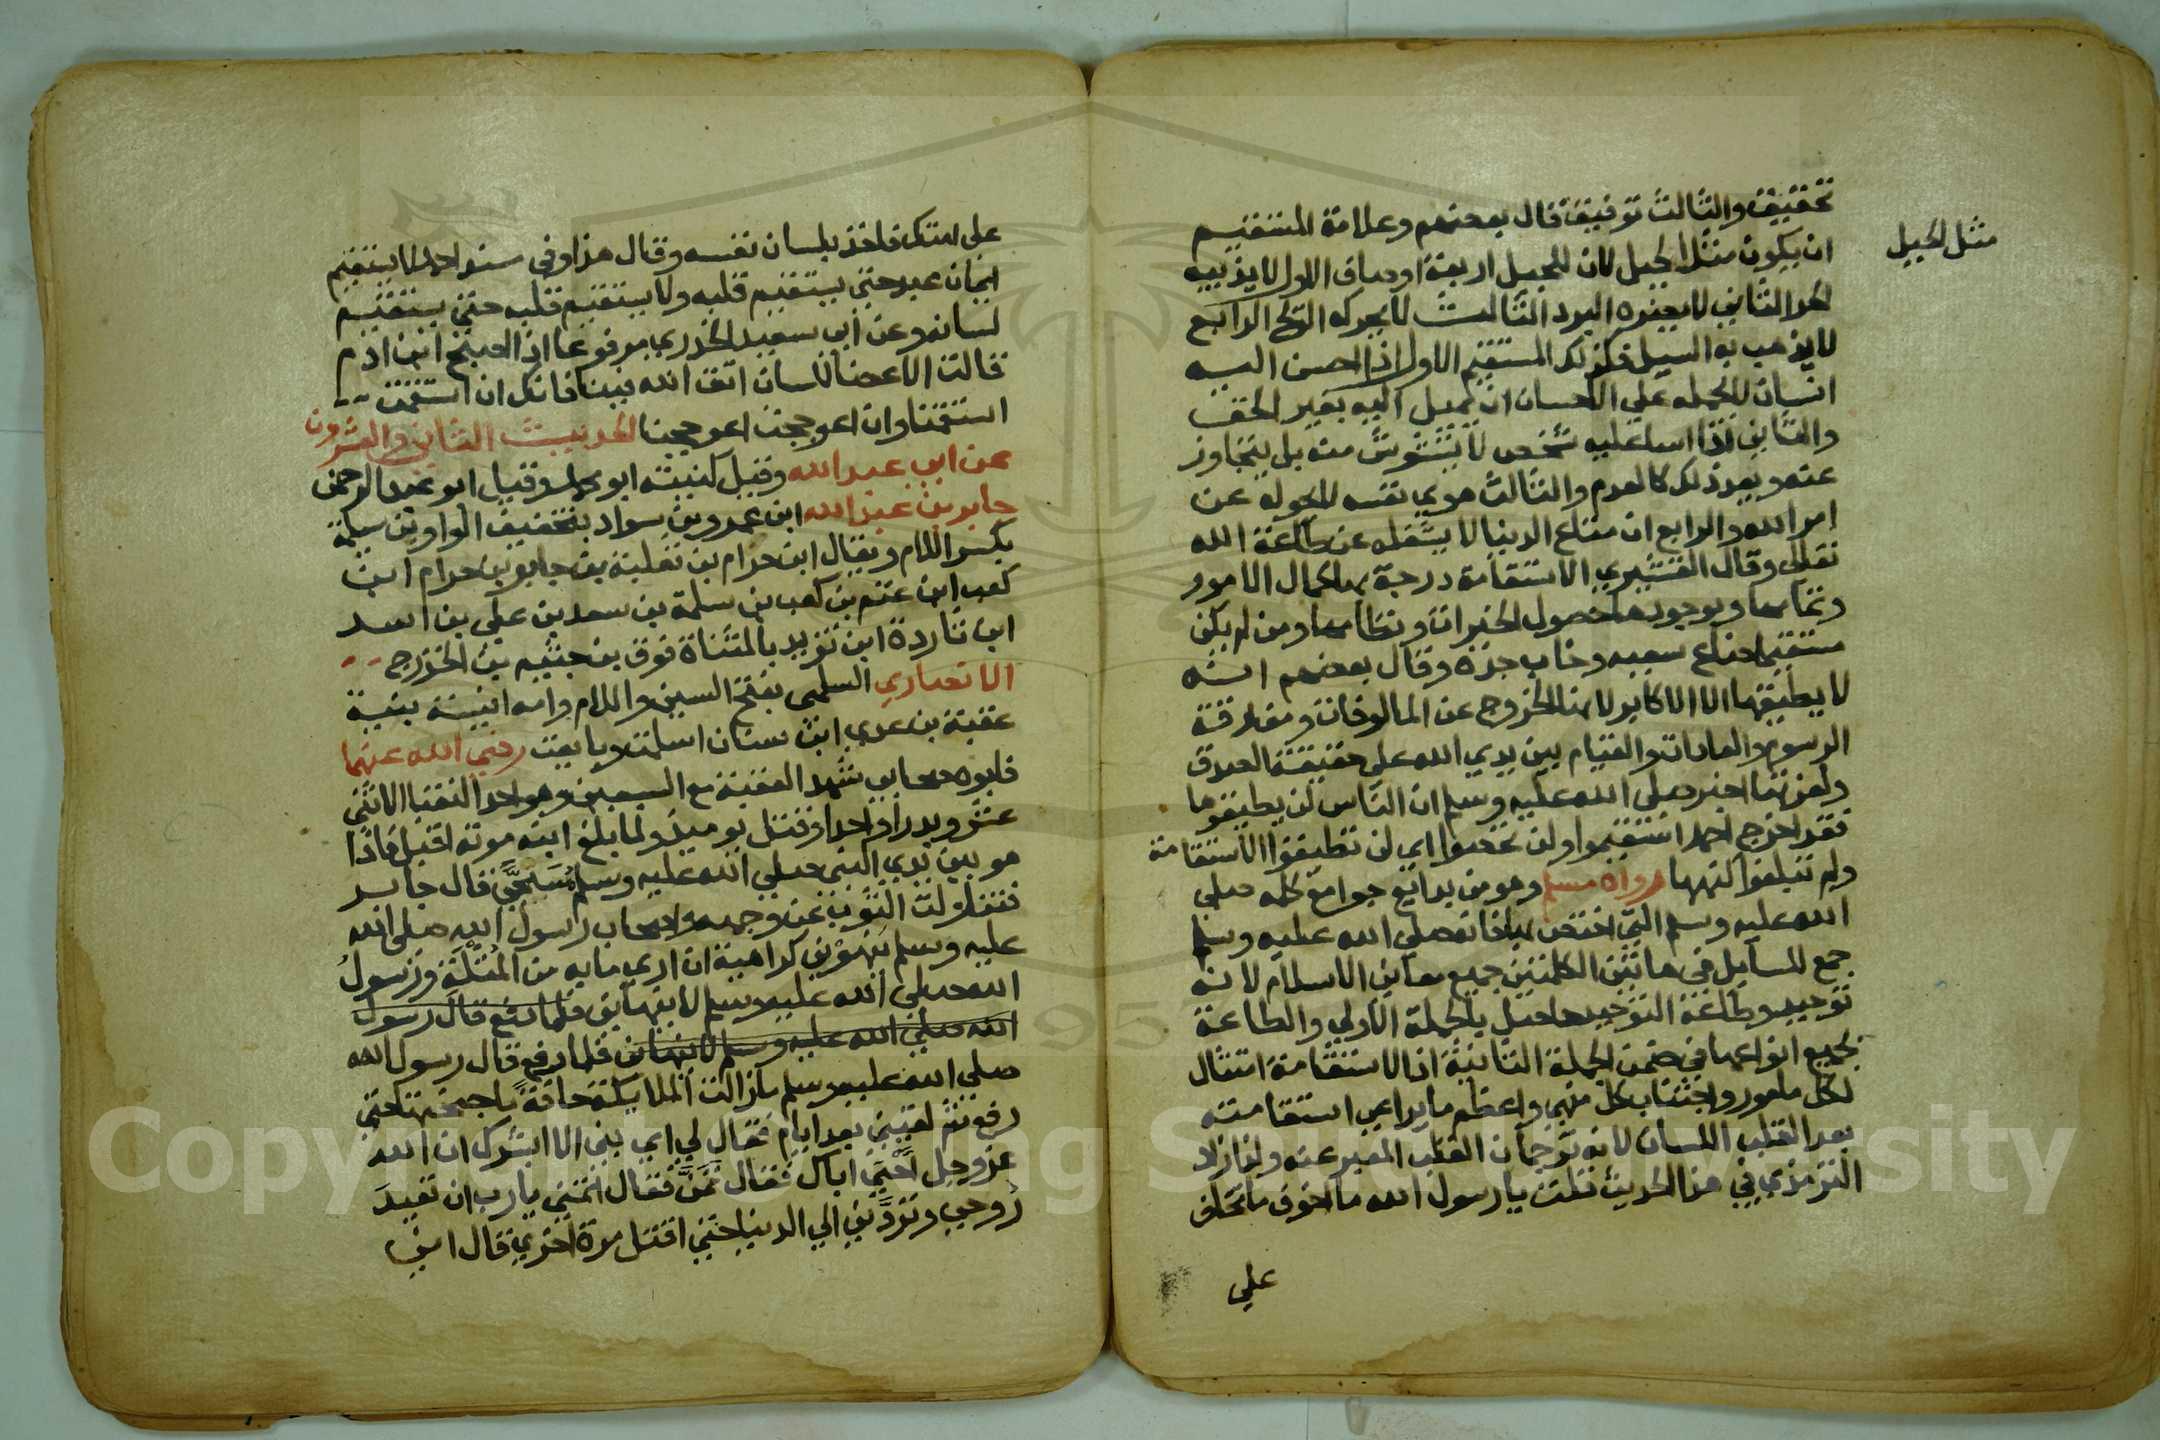 تحقيق والثالث توفيق قال بعضهم وعلامة المستقيم
ان يكون مثل الجبل لان للجبل اربعة اوصاف الاول لا يذيبه
مثل الجبل
الحر الثاني لا يجمده البرد الثالث لا يحركه الريح الرابع
لا يذهب به السيل فكذلك المستقيم الاول اذا احسن اليه
انسان لا يحمله علي الاحسان ان يميل اليه بغير الحق
والثاني اذا اسا عليه شخص لا يتشوش منه بل يتجاوز
عنه ويعد ذلك كالعدم والثالث هوي نفسه لا يحوله عن
امر الله والرابع ان متاع الدنيا لا يشغله عن طاعة الله
تعالى وقال القشيري الاستقامة درجة بها كمال الامور
وتمامها وبوجودها حصول الخيرات ونظامها ومن لم يكن
مستقيما ضاع سعيه وخاب جده وقال بعضهم انه
لا يطيقها الا الاكابر لانها الخروج عن المالوفات ومفارقة
الرسوم والعادات والقيام بين يدي الله علي حقيقة الصدق
ولعزتها اخبر صلى الله عليه وسلم ان الناس لن يطيقوها
فقد اخرج احمد استقيموا ولن تحصوا اي لن تطيقوا الاستقامة
ولم تبلغوا كنهها رواه مسلم وهو من بدايع جوامع كلمه صلى
الله عليه وسلم التي اختص بها فانه صلى الله عليه وسلم
جمع للسايل في هاتين الكلمتين جميع معاني الاسلام لانه
توحيد وطاعة التوحيد حاصل بالجملة الاولي والطاعة
بجميع انواعها في ضمن الجملة الثانية اذ الاستقامة امتثال
لكل مامور واجتناب كل منهي واعظم ما يراعي استقامته
بعد القلب اللسان لانه ترجمان القلب المعبر عنه ولذا زاد
الترمذي في هذا الحديث قلت يا رسول الله ما اخوف ما تخاف
علي
علي امتك فاخذ بلسان نفسه وقال هذا وفي سند احمد لا يستقيم
ايمان عبد حتى يستقيم قلبه ولا يستقيم قلبه حتى يستقيم
لسانه وعن ابي سعيد الخدري مرفوعا اذا اصبح ابن ادم
قالت الاعضا للسان اتق الله فينا فانك ان استقمت
استقمنا وان اعوججت اعوججنا الحديث الثاني والعشرون
عن ابي عبد الله وقيل كنيته ابو محمد وقيل ابو عبد الرحمن
جابر بن عبد الله ابن عمرو بن سواد بتخفيف الواو بن سلمة
بكسر اللام ويقال ابن حرام بن ثعلبة بن جابر بن حرام ابن
كعب ابن غنم بن كعب بن سلمة بن سعد بن علي بن اسد
ابن تاردة ابن تزيد بالمثناة فوق بن جشم بن الخزرج
الانصاري السلمى بفتح السين واللام وامه انيسة بنية
عقبة بن عدي ابن سنان اسلمت وبايعت رضي الله عنهما
فابوه صحابي شهد العقبة مع السبعين وهو احد النقبا الاثني
عشر وبدرا واحدا وقتل يوميذ ولما بلغ ابنه موته اقبل فاذا
هو بين يدي النبي صلي الله عليه وسلم مُسَجًّي قال جابر
فتناولت الثوب عن وجهه واصحاب رسول الله صلى الله
عليه وسلم ينهوني كراهية ان اري ما به من المُثْلَةِ ورسولُ
الله صلى الله عليه وسلم لا ينهاني فلما رفع قال رسول
الله صلي الله عليه وسلم لا ينهاني فلما رفع قال رسول الله
صلي الله عليه وسلم ما زالت الملايكة حافةً باجنحتها حتى
رفع ثم لقيني بعد ايام فقال لي اي بني الا ابشرك ان الله
عز وجل احْيَي اباك فقال تَمَنَّ فقال اتمني يا رب ان تعيد
رُوحي وتَرُدَّني الي الدنيا حتى اقتل مرة اخري قال اني